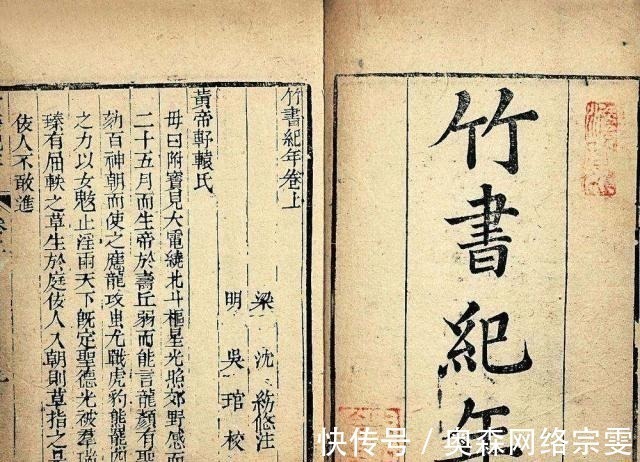 竹書紀年
竹書紀年卷上
梁 沈約附注
明 吳琯校
黃帝軒轅氏
母曰附寶見大電繞北斗樞星光照郊野感而
二十五月而生帝於壽丘弱而能言龍顏有聖
劾百神朝而使之應龍攻蚩尤戰虎豹熊羆
之力以女魃止淫雨天下既定聖德光被羣瑞
臻有屈軼之草生於庭佞人入朝則草指之是
佞人不敢進
快传号／奥森网络宗雯